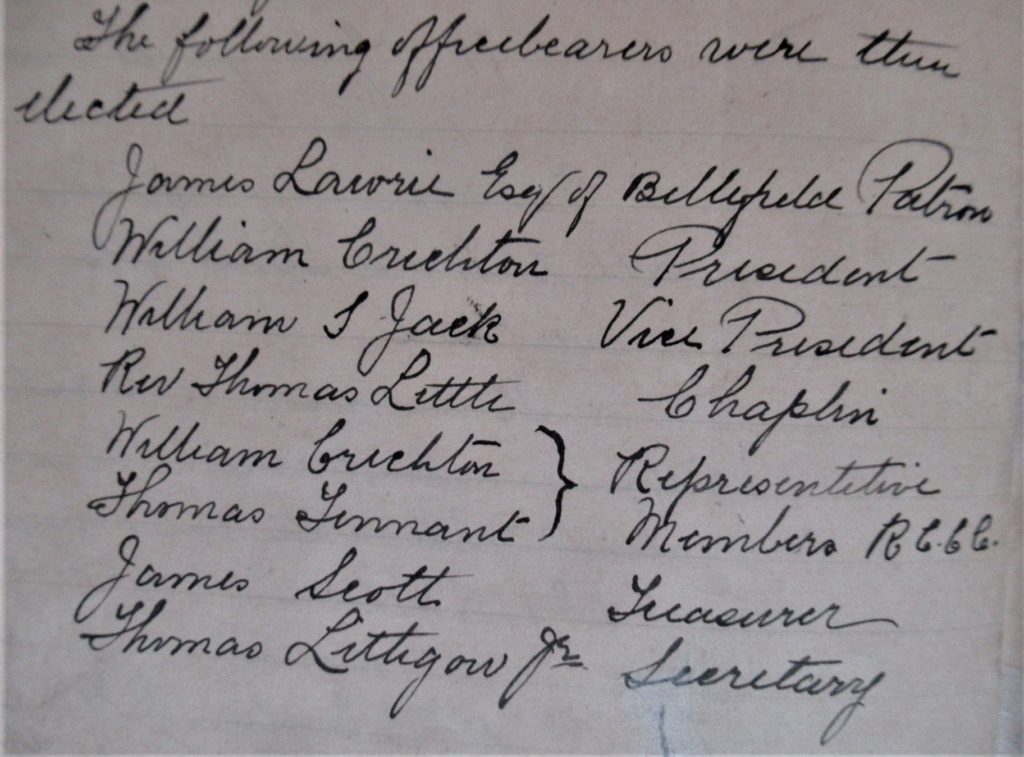 The following officebearers were then
elected
James Lawrie Esq of Bellefield Patron
William Crichton President
William S Jack Vice President
Rev Thomas Little Chaplin
William Crichton } Representitive
Thomas Tennant } Members R.C.C.C.
James Scott Treasurer
Thomas Littigow Jr Secretary